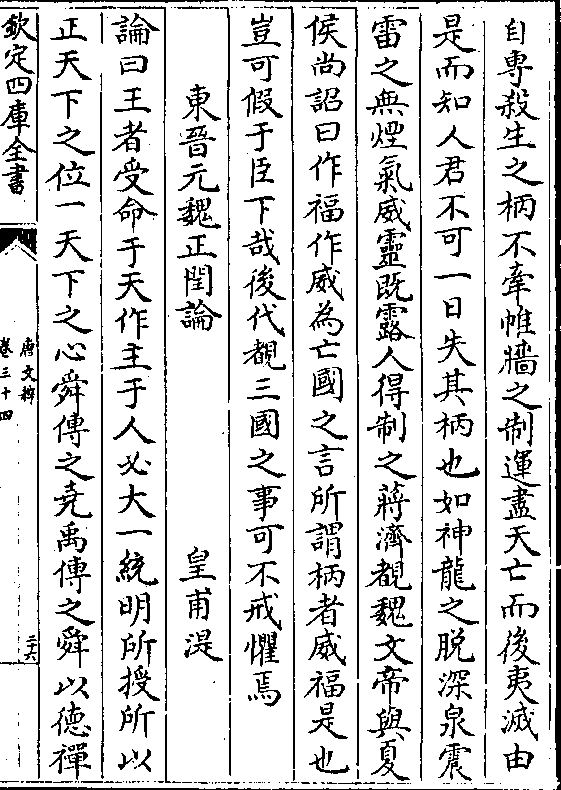 自專殺生之柄不牽帷牆之制運盡天亡而後夷滅由
是而知人君不可一日失其柄也如神龍之脫深泉震
雷之無煙氣威靈既露人得制之蔣濟覩魏文帝與夏
侯尚詔曰作福作威為亡國之言所謂柄者威福是也
豈可假于臣下哉後代覩三國之事可不戒懼焉
東晉元魏正閏論　皇甫湜
論曰王者受命于天作主于人必大一統明所授所以
正天下之位一天下之心舜傳之堯禹傳之舜以德禪
欽定四庫全書
唐文粹
卷三十四
三六